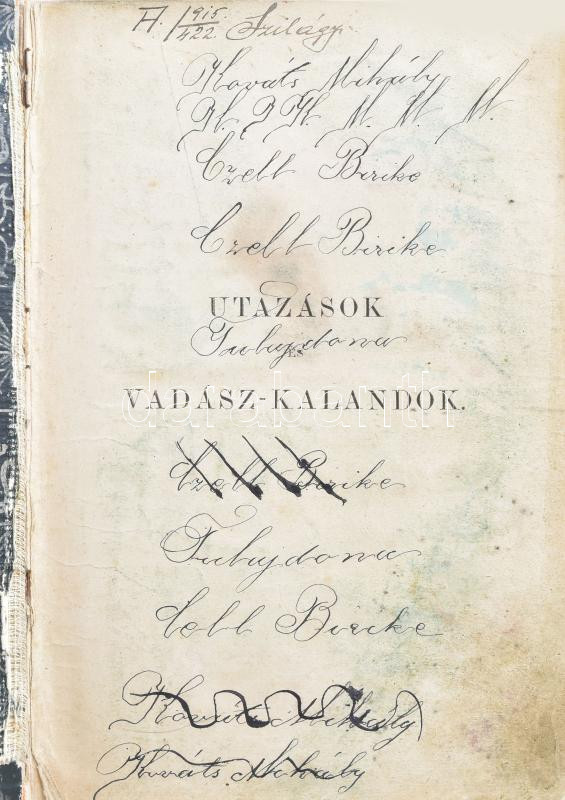 A. 1915/422 Szilágyi
Kováts Mihály
K. K. M. M. M.
Czell Birike
Czell Birike
UTAZÁSOK
Tulajdona
ÉS
VADÁSZ-KALANDOK.
darabanth
Czell Birike
Tulajdona
Cell Biricke
Kováts Mihály
Kováts Mihály